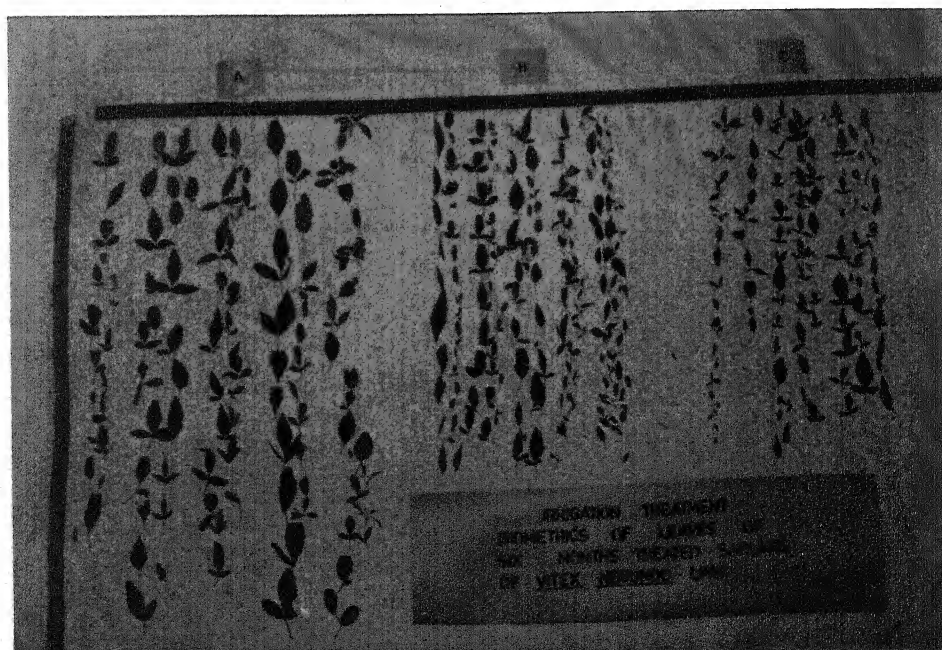 A
B
IRRIGATION TREATMENT
BIOMETRICS OF LEAVES OF
SIX MONTHS TREATED
OF VITEX LINN